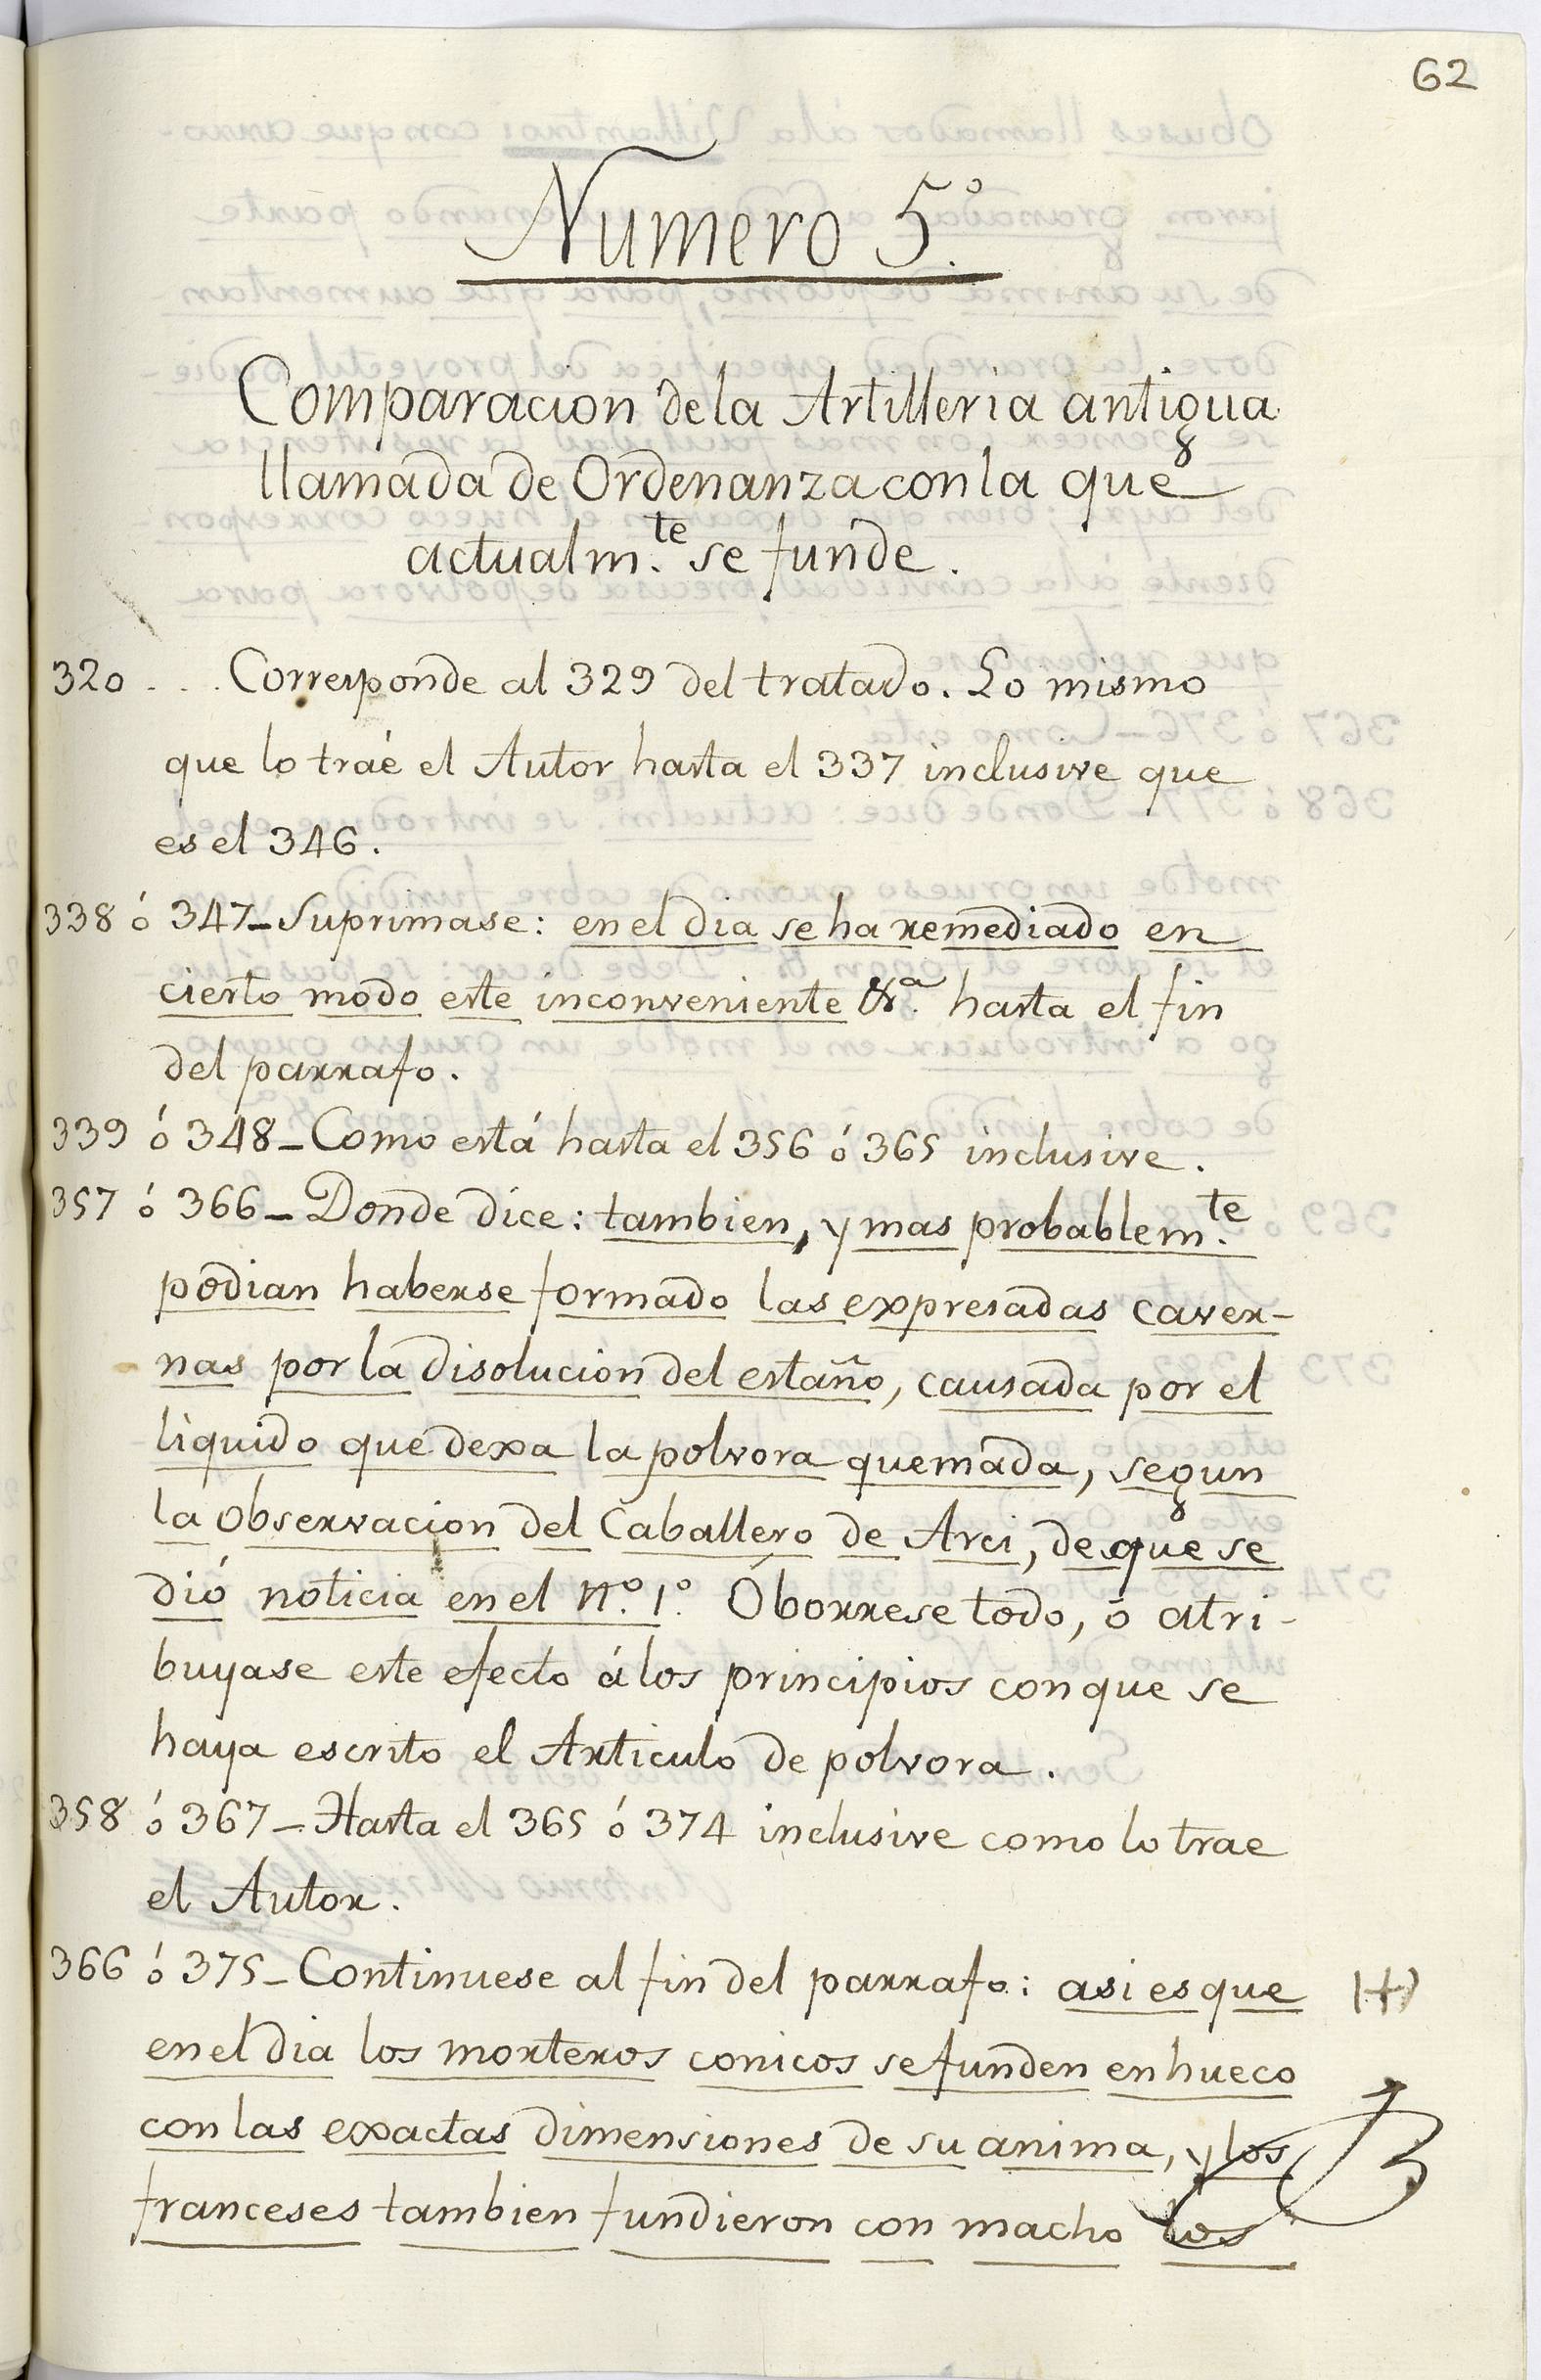 62
Numero 5.º
Comparacion de la Artilleria antigua
llamada de Ordenanza con la que
actualm.te se funde.
320 .... Corresponde al 329 del tratado. Lo mismo
que lo tráe el Autor hasta el 337 inclusive que
es el 346.
338 ó 347_Suprimase: en el dia se ha remediado en
cierto modo este inconveniente &.a hasta el fin
del parrafo.
339 ó 348_Como está hasta el 356 ó 365 inclusive.
357 ó 366_Donde dice: tambien, y mas probablem.te
podian haberse formado las expresadas caver-
nas por la disolucion del estaño, causada por el
liquido que dexa la polvora quemada, segun
la observacion del Caballero de Arci, de que se
dió noticia en el n.º 1.º Óborrese todo, ó atri-
buyase este efecto á los principios con que se
haya escrito el Articulo de polvora.
358 ó 367_Hasta el 365 ó 374 inclusive como lo trae
el Autor.
366 ó 375_Continuese al fin del parrafo: asi es que
en el dia los morteros conicos se funden en hueco
con las exactas dimensiones de su anima, y los
franceses tambien fundieron con macho los